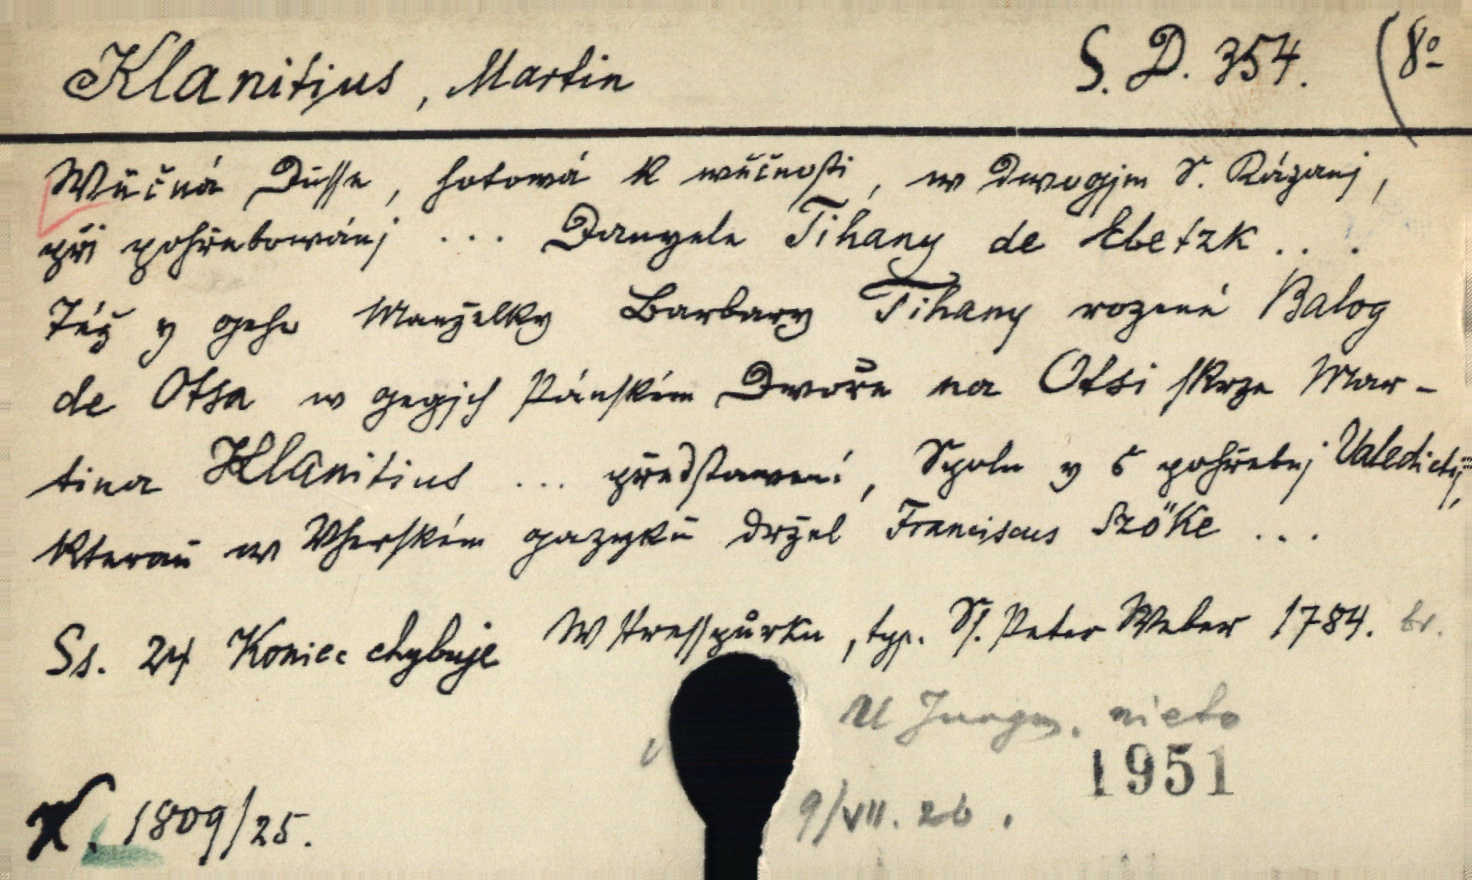 Klanitius, Martin S. D. 354. (8º
Wěčná Dusse, hotowá k wěčnosti, w dwogjm S. Kázanj,
při pohřebowánj ... Danyele Tihany de Ebetzk ...
Též y geho Manželky Barbary Tihany rozené Balog
de Otsa w gegjch Pánském Dwoře na Otsi skrze Mar-
tina Klanitius ... představené, Spolu y s pohřebnj Valedictij,
kterau w Uherském gazyku držel Franciscus Szőke ...
Ss. 24 Koniec chybuje W Presspůrku, typ. Sf. Peter Weber 1784. br.
U Jungm. nieto
1951
X. 1809/25. 9/VII. 26.